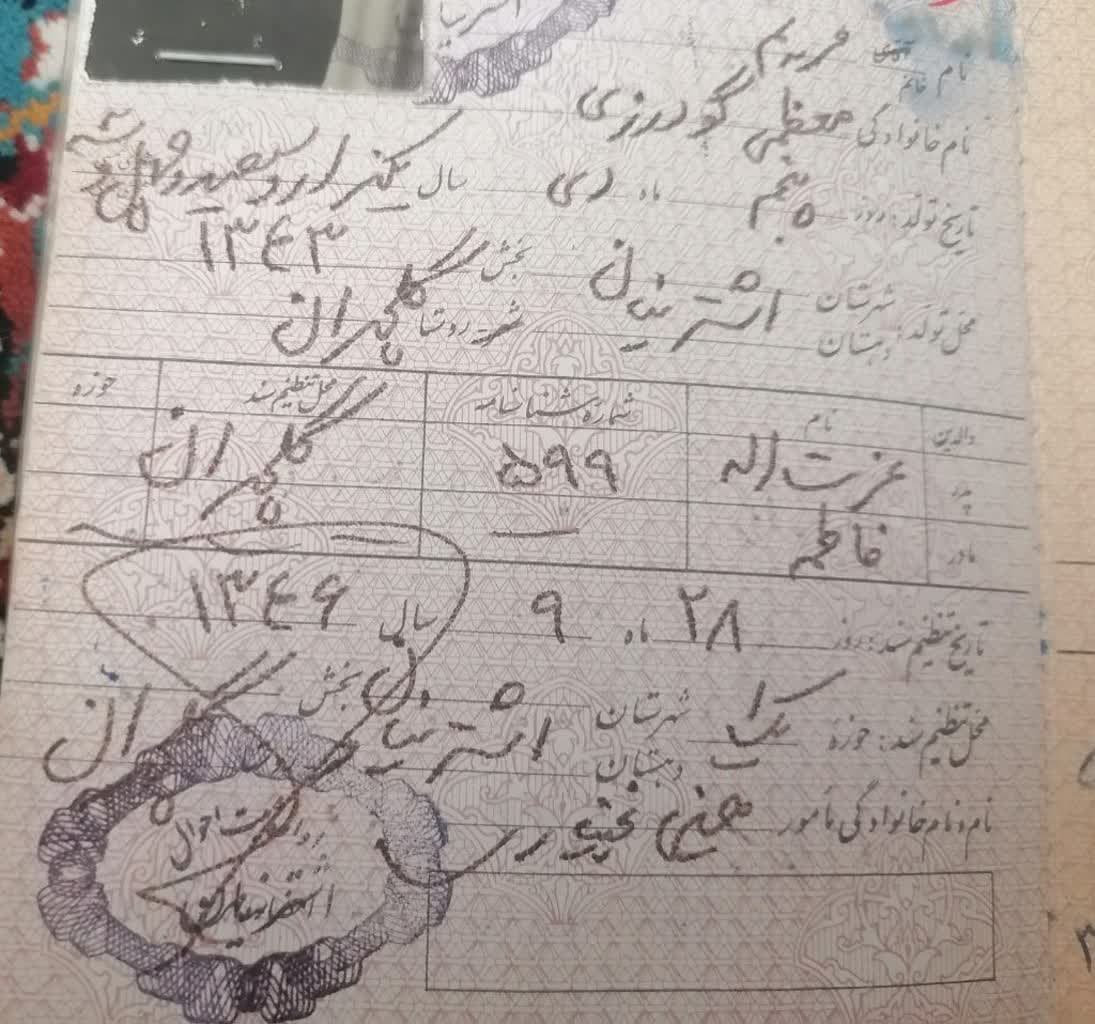 اشتریـ
نام آقای خانم مریم
نام خانوادگی معظمی گودرزی
تاریخ تولد: روز پنجم ماه دی سال یکهزار و سیصد و چهل و سه
۱۳۴۳
محل تولد: شهرستان دهستان اشترینان بخش
شهر - روستا
والدین نام شماره شناسنامه محل تنظیم سند حوزه
پدر عزت اله ۵۹۹
مادر فاطمه
تاریخ تنظیم سند: روز ۲۸ ماه ۹ سال ۱۳۴۶
محل تنظیم سند: حوزه یک شهرستان دهستان اشترینان بخش
نام و نام خانوادگی مأمور